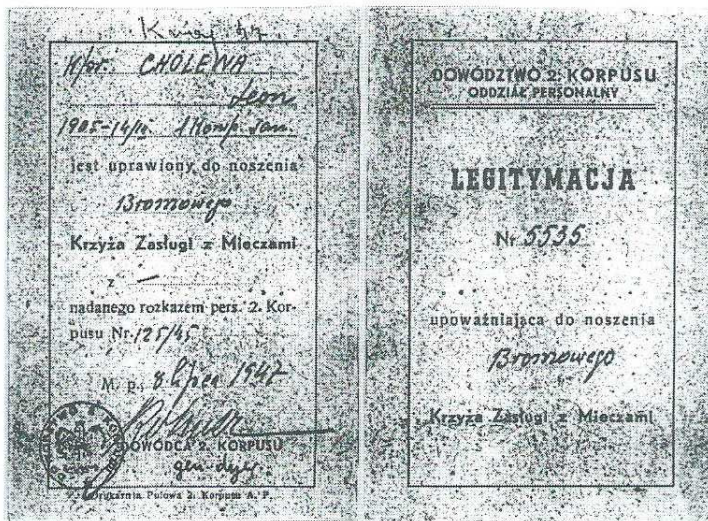 CHOLEWA
Leon
1905-14/
jest uprawiony do noszenia
Bronzowego
Krzyża Zasługi z Mieczami
z —
nadanego rozkazem pers. 2. Kor-
pusu Nr. 125/45
M. p. 8 lipca 1947
DOWÓDCA 2. KORPUSU
gen. dyw.
Drukarnia Polowa 2. Korpusu A. P.
DOWÓDZTWO 2. KORPUSU
ODDZIAŁ PERSONALNY
LEGITYMACJA
Nr 5535
upoważniająca do noszenia
Bronzowego
Krzyża Zasługi z Mieczami